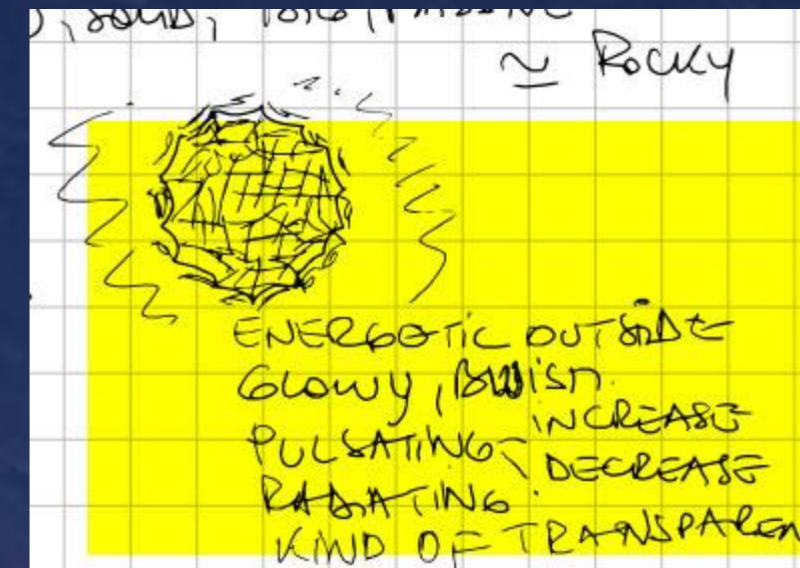 SOLID,
≃ ROCKY
ENERGETIC OUTSIDE
GLOWY, BLUISH.
PULSATING - INCREASE
DECREASE
RADIATING.
KIND OF TRANSPAREN